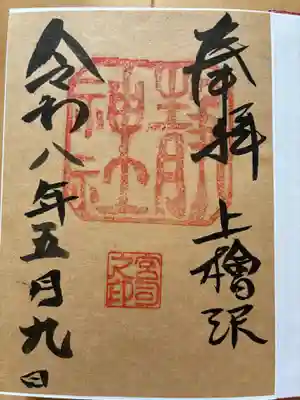 奉拝 上檜沢
神社
宮司之印
令和八年五月九日